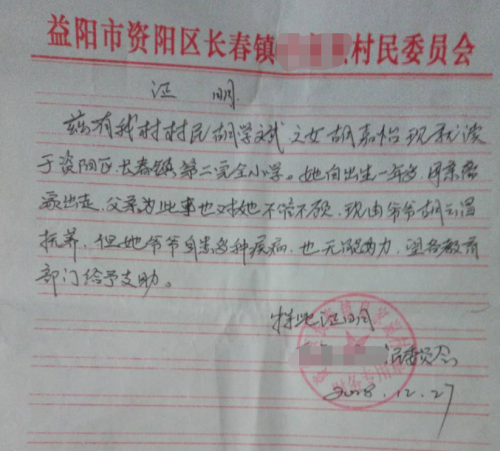 益阳市资阳区长春镇 村民委员会
证 明
兹有我村村民胡学斌之女胡嘉怡现就读
于资阳区长春镇第二完全小学。她自出生一年多,母亲
出走,父亲为此事也对她不管不顾,现由爷爷胡云
抚养,但她爷爷身患多种疾病,也无能为力,望各教育
部门给予支助。
特此证明
民委员会
2018.12.27
财务专用章